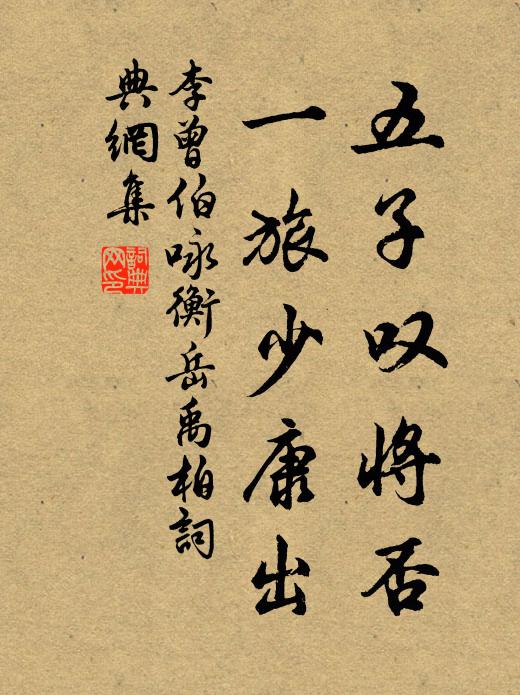 五子叹将否
一旅少康出
李曾伯咏衡岳禹柏詞
典網集
詞典网印